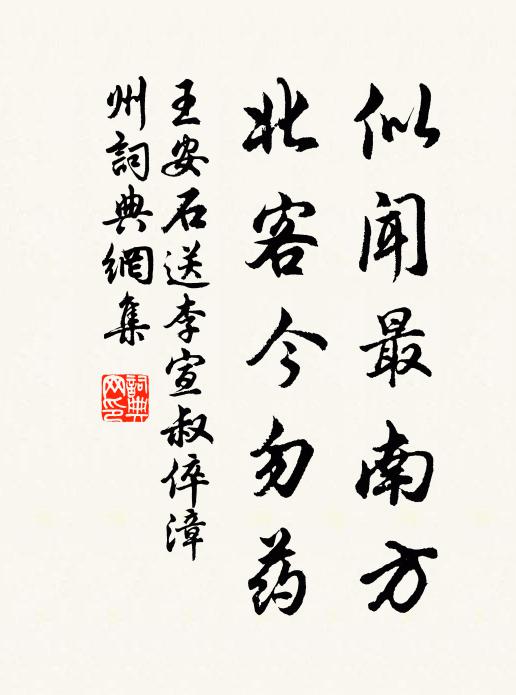 似闻最南方
北客今勿药
王安石送李宣叔倅漳
州詞典網集
詞典
网印